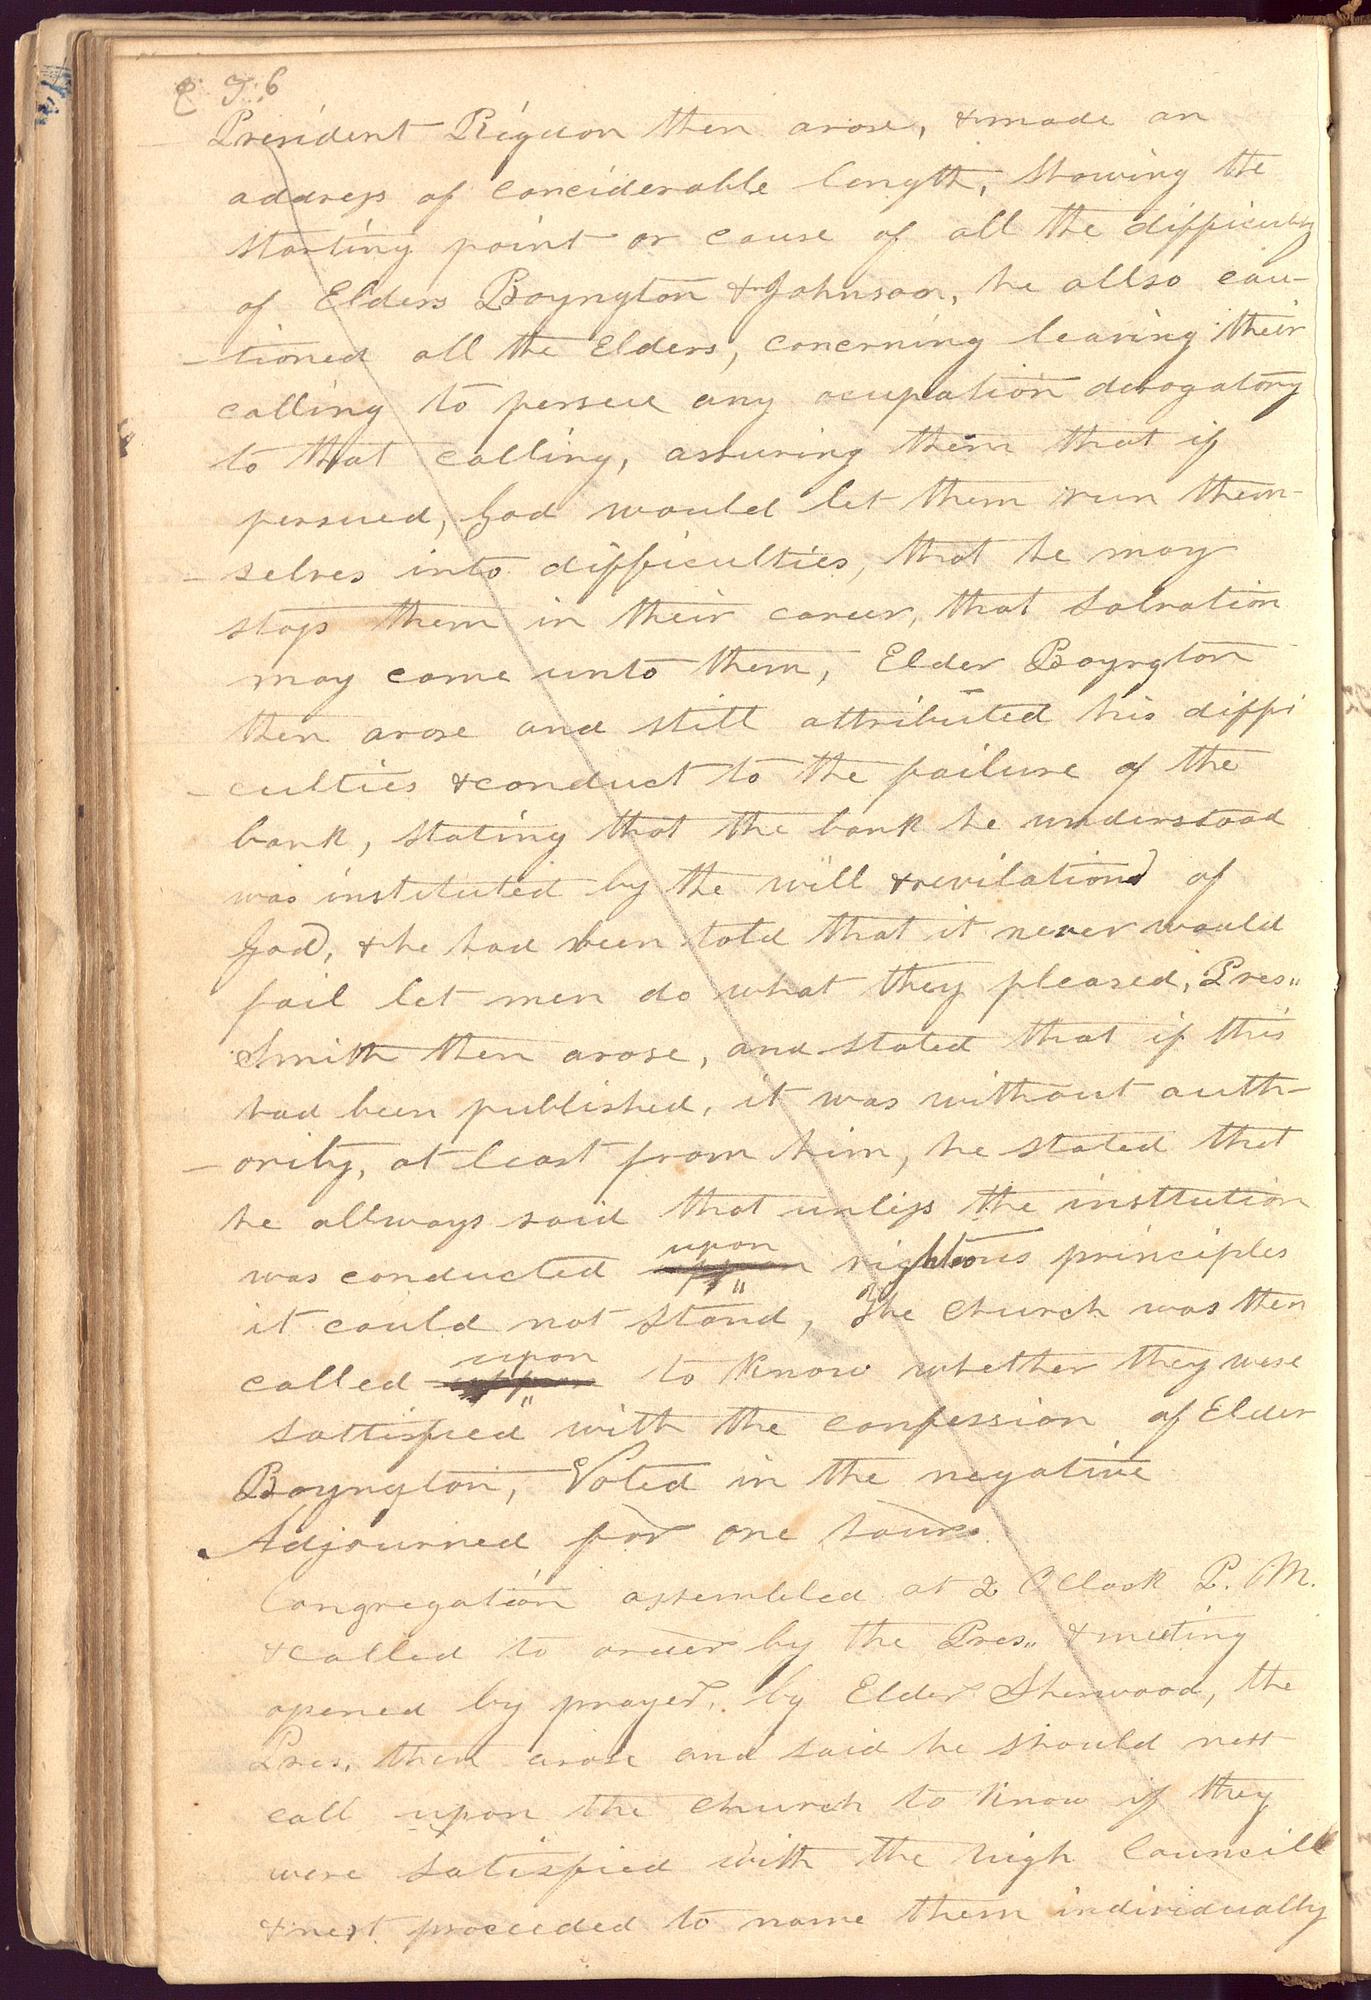 President Rigdon then arose, & made an
address of conciderable length, showing the
starting point or cause of all the difficulty
of Elders Boyngton & Johnson, he allso cau-
-tioned all the Elders, concerning leaving their
calling to persue any ocupation derogatory
to that calling, assuring them that if
persued, God would let them run them-
-selves into difficulties, that he may
stop them in their career, that Salvation
may come unto them, Elder Boyngton
then arose and still attributed his diffi
-culties & conduct to the failure of the
bank, stating that the bank he understood
was instituted by the will & revilations of
God, & he had been told that it never would
fail let men do what they pleased, Pres,,
Smith then arose, and stated that if this
had been published, it was without auth-
-ority, at least from him, he stated that
he allways said that unless the insttution
was conducted upon righteous principles
it could not stand, The church was then
called upon to know whether they were
Sattisfied with the confession of Elder
Boyngton, Voted in the negative
Adjourned for one hour.
Congregation assembled at 2 O Clock P. M.
& called to order by the Pres,, & meeting
opened by prayer, by Elder Sherwood, the
Pres, then arose and said he should next
call upon the church to know if they
were Satisfied with the high Councill
& next proceeded to name them individually